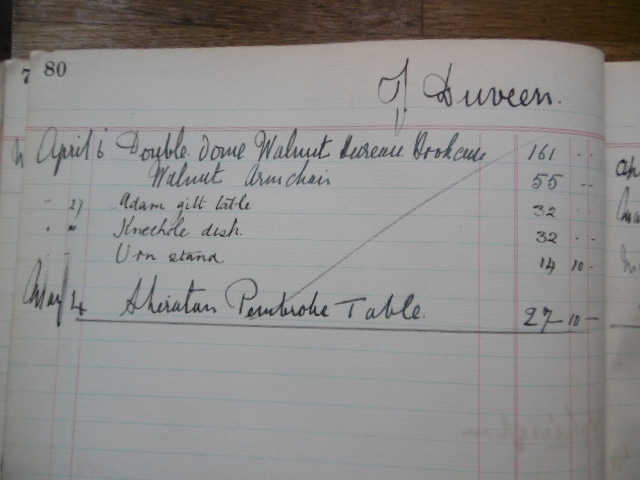 7 80
J. Duveen.
April 6 Double Dome Walnut Bureau Bookcase 161 - -
Walnut Armchair 55 - -
" 27 Adam gilt table 32 - -
" " Kneehole desk. 32 - -
Urn stand 14 10 -
May 4 Sheraton Pembroke Table. 27 10 -